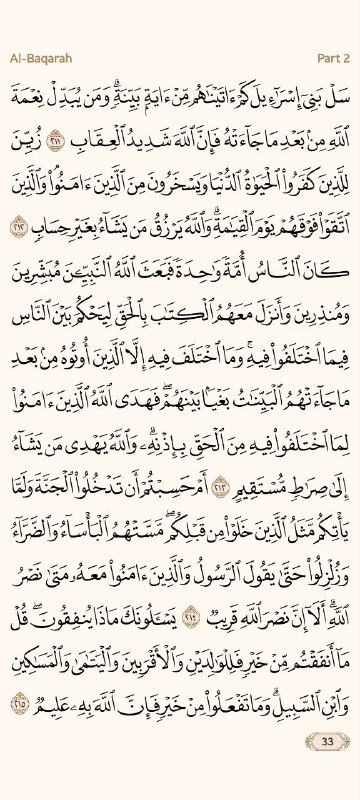 Al-Baqarah Part 2
سَلْ بَنِىٓ إِسْرَٰٓءِيلَ كَمْ ءَاتَيْنَٰهُم مِّنْ ءَايَةٍۭ بَيِّنَةٍۗ وَمَن يُبَدِّلْ نِعْمَةَ
ٱللَّهِ مِنۢ بَعْدِ مَا جَآءَتْهُ فَإِنَّ ٱللَّهَ شَدِيدُ ٱلْعِقَابِ ٢١١ زُيِّنَ
لِلَّذِينَ كَفَرُوا۟ ٱلْحَيَوٰةُ ٱلدُّنْيَا وَيَسْخَرُونَ مِنَ ٱلَّذِينَ ءَامَنُوا۟ۘ وَٱلَّذِينَ
ٱتَّقَوْا۟ فَوْقَهُمْ يَوْمَ ٱلْقِيَٰمَةِۗ وَٱللَّهُ يَرْزُقُ مَن يَشَآءُ بِغَيْرِ حِسَابٍ ٢١٢
كَانَ ٱلنَّاسُ أُمَّةً وَٰحِدَةً فَبَعَثَ ٱللَّهُ ٱلنَّبِيِّـۧنَ مُبَشِّرِينَ
وَمُنذِرِينَ وَأَنزَلَ مَعَهُمُ ٱلْكِتَٰبَ بِٱلْحَقِّ لِيَحْكُمَ بَيْنَ ٱلنَّاسِ
فِيمَا ٱخْتَلَفُوا۟ فِيهِۚ وَمَا ٱخْتَلَفَ فِيهِ إِلَّا ٱلَّذِينَ أُوتُوهُ مِنۢ بَعْدِ
مَا جَآءَتْهُمُ ٱلْبَيِّنَٰتُ بَغْيًۢا بَيْنَهُمْۖ فَهَدَى ٱللَّهُ ٱلَّذِينَ ءَامَنُوا۟
لِمَا ٱخْتَلَفُوا۟ فِيهِ مِنَ ٱلْحَقِّ بِإِذْنِهِۦۗ وَٱللَّهُ يَهْدِى مَن يَشَآءُ
إِلَىٰ صِرَٰطٍ مُّسْتَقِيمٍ ٢١٣ أَمْ حَسِبْتُمْ أَن تَدْخُلُوا۟ ٱلْجَنَّةَ وَلَمَّا
يَأْتِكُم مَّثَلُ ٱلَّذِينَ خَلَوْا۟ مِن قَبْلِكُمۖ مَّسَّتْهُمُ ٱلْبَأْسَآءُ وَٱلضَّرَّآءُ
وَزُلْزِلُوا۟ حَتَّىٰ يَقُولَ ٱلرَّسُولُ وَٱلَّذِينَ ءَامَنُوا۟ مَعَهُۥ مَتَىٰ نَصْرُ
ٱللَّهِۗ أَلَآ إِنَّ نَصْرَ ٱللَّهِ قَرِيبٌ ٢١٤ يَسْـَٔلُونَكَ مَاذَا يُنفِقُونَۖ قُلْ
مَآ أَنفَقْتُم مِّنْ خَيْرٍ فَلِلْوَٰلِدَيْنِ وَٱلْأَقْرَبِينَ وَٱلْيَتَٰمَىٰ وَٱلْمَسَٰكِينِ
وَٱبْنِ ٱلسَّبِيلِۗ وَمَا تَفْعَلُوا۟ مِنْ خَيْرٍ فَإِنَّ ٱللَّهَ بِهِۦ عَلِيمٌ ٢١٥
33